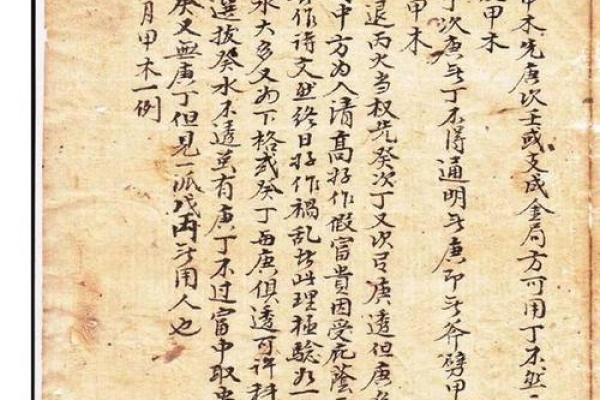 甲木先庚次壬或支成金局方可用丁不然
甲木
丁次庚无丁不得通明无庚即无斧劈甲
甲木
退丙火当权先癸次丁又次言庚透但庚
中方为人清高好作假富貴因受庇蔭
作诗文然终日好作禍乱此理極驗如一
水太多又为下格或癸丁与庚俱透可许科
選拔癸水不透虽有庚丁不过富中取
癸又無庚丁但見一派戊丙无用人也
月甲木一例